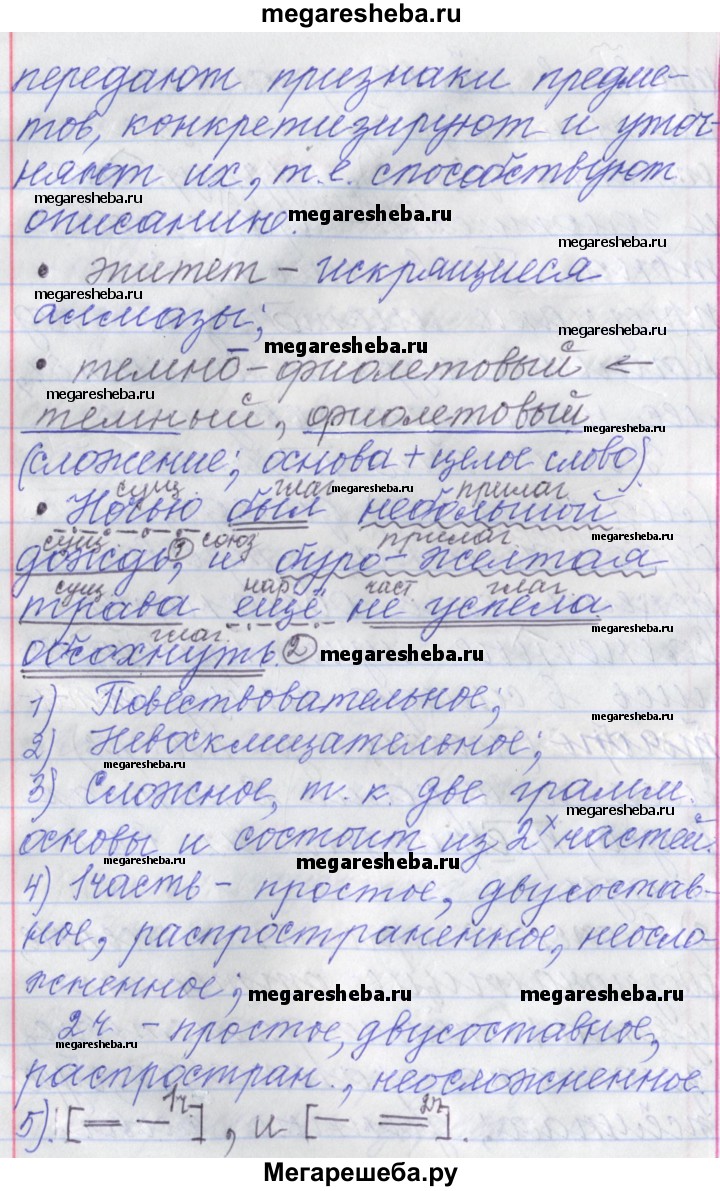 megaresheba.ru
передают признаки предме-
тов, конкретизируют и уточ-
няют их, т.е. способствуют
megaresheba.ru
описанию. megaresheba.ru
megaresheba.ru
• эпитет – искрящиеся
megaresheba.ru
алмазы;
megaresheba.ru
megaresheba.ru
• темно-фиолетовый ←
megaresheba.ru
темный, фиолетовый
megaresheba.ru
(сложение; основа + целое слово).
сущ глаг прилаг
megaresheba.ru
• Ночью был небольшой
сущ 1 союз прилаг
дождь, и буро-желтая
megaresheba.ru
сущ нар част глаг
трава ещё не успела
megaresheba.ru
глаг
обсохнуть. 2 megaresheba.ru
1) Повествовательное;
megaresheba.ru
2) Невосклицательное;
megaresheba.ru
3) Сложное, т.к. две грамм.
megaresheba.ru
основы и состоит из 2х частей.
megaresheba.ru megaresheba.ru
4) 1 часть – простое, двусостав-
ное, распространенное, неосло-
жненное;
megaresheba.ru megaresheba.ru
2 ч – простое, двусоставное,
megaresheba.ru
распростран., неосложненное.
5) [= – 1ч], и [– = 2ч].
Мегарешеба.ру